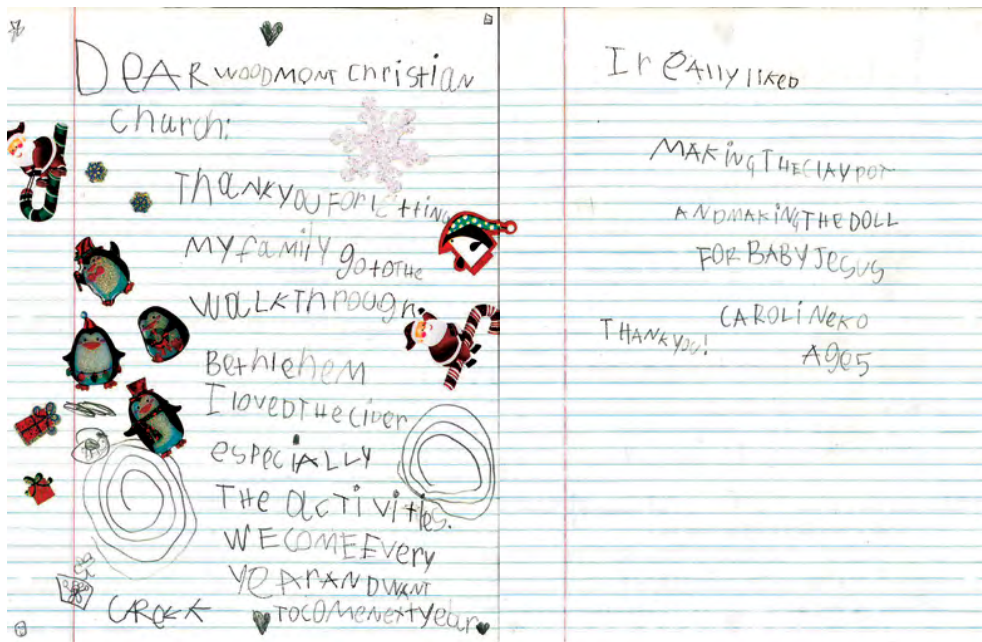 DEAR WOODMONT Christian
Church:
ThaNKYOU FOR LETTING
MY family go to THE
WALKThrough
BeThlehem
I loveD THE ciDer
especiALLY
THE acTiviTies.
WE COME Every
YeAr AND WANT
TO COME NexT year
I reAlly likeD
MAKiNG THE CLAY POT
AND MAKING THE DOLL
FOR BABY Jesus
CAROLiNe KO
THANK YOU!
Age 5